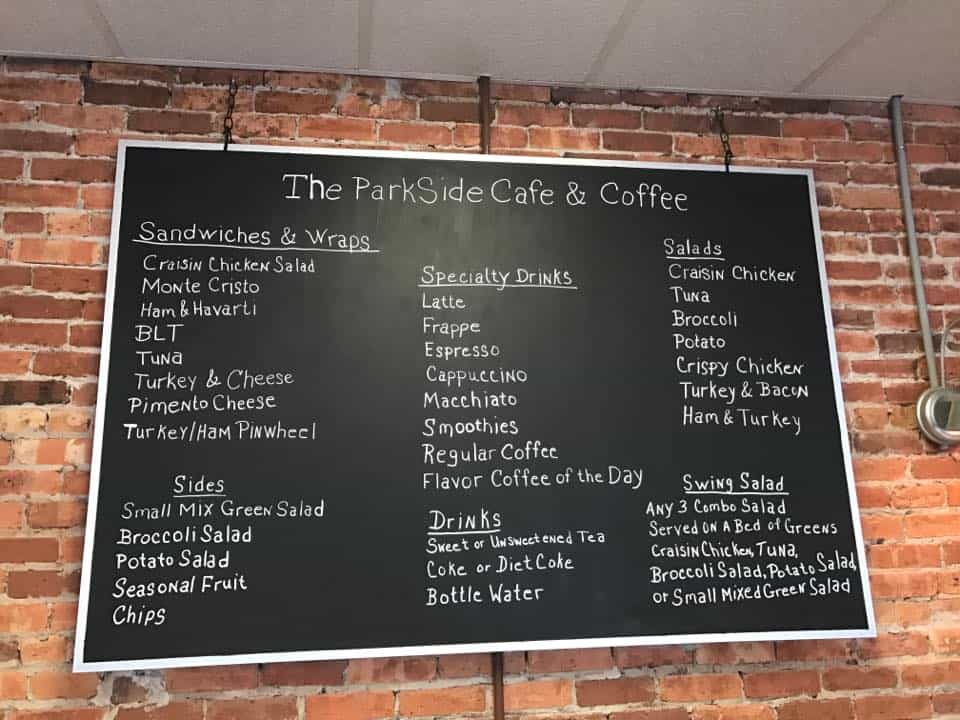 The ParkSide Cafe & Coffee
Sandwiches & Wraps
Craisin Chicken Salad
Monte Cristo
Ham & Havarti
BLT
Tuna
Turkey & Cheese
Pimento Cheese
Turkey/Ham Pinwheel
Sides
Small Mix Green Salad
Broccoli Salad
Potato Salad
Seasonal Fruit
Chips
Specialty Drinks
Latte
Frappe
Espresso
Cappuccino
Macchiato
Smoothies
Regular Coffee
Flavor Coffee of the Day
Drinks
Sweet or Unsweetened Tea
Coke or Diet Coke
Bottle Water
Salads
Craisin Chicken
Tuna
Broccoli
Potato
Crispy Chicken
Turkey & Bacon
Ham & Turkey
Swing Salad
Any 3 Combo Salad
Served on a Bed of Greens
Craisin Chicken, Tuna,
Broccoli Salad, Potato Salad,
or Small Mixed Green Salad